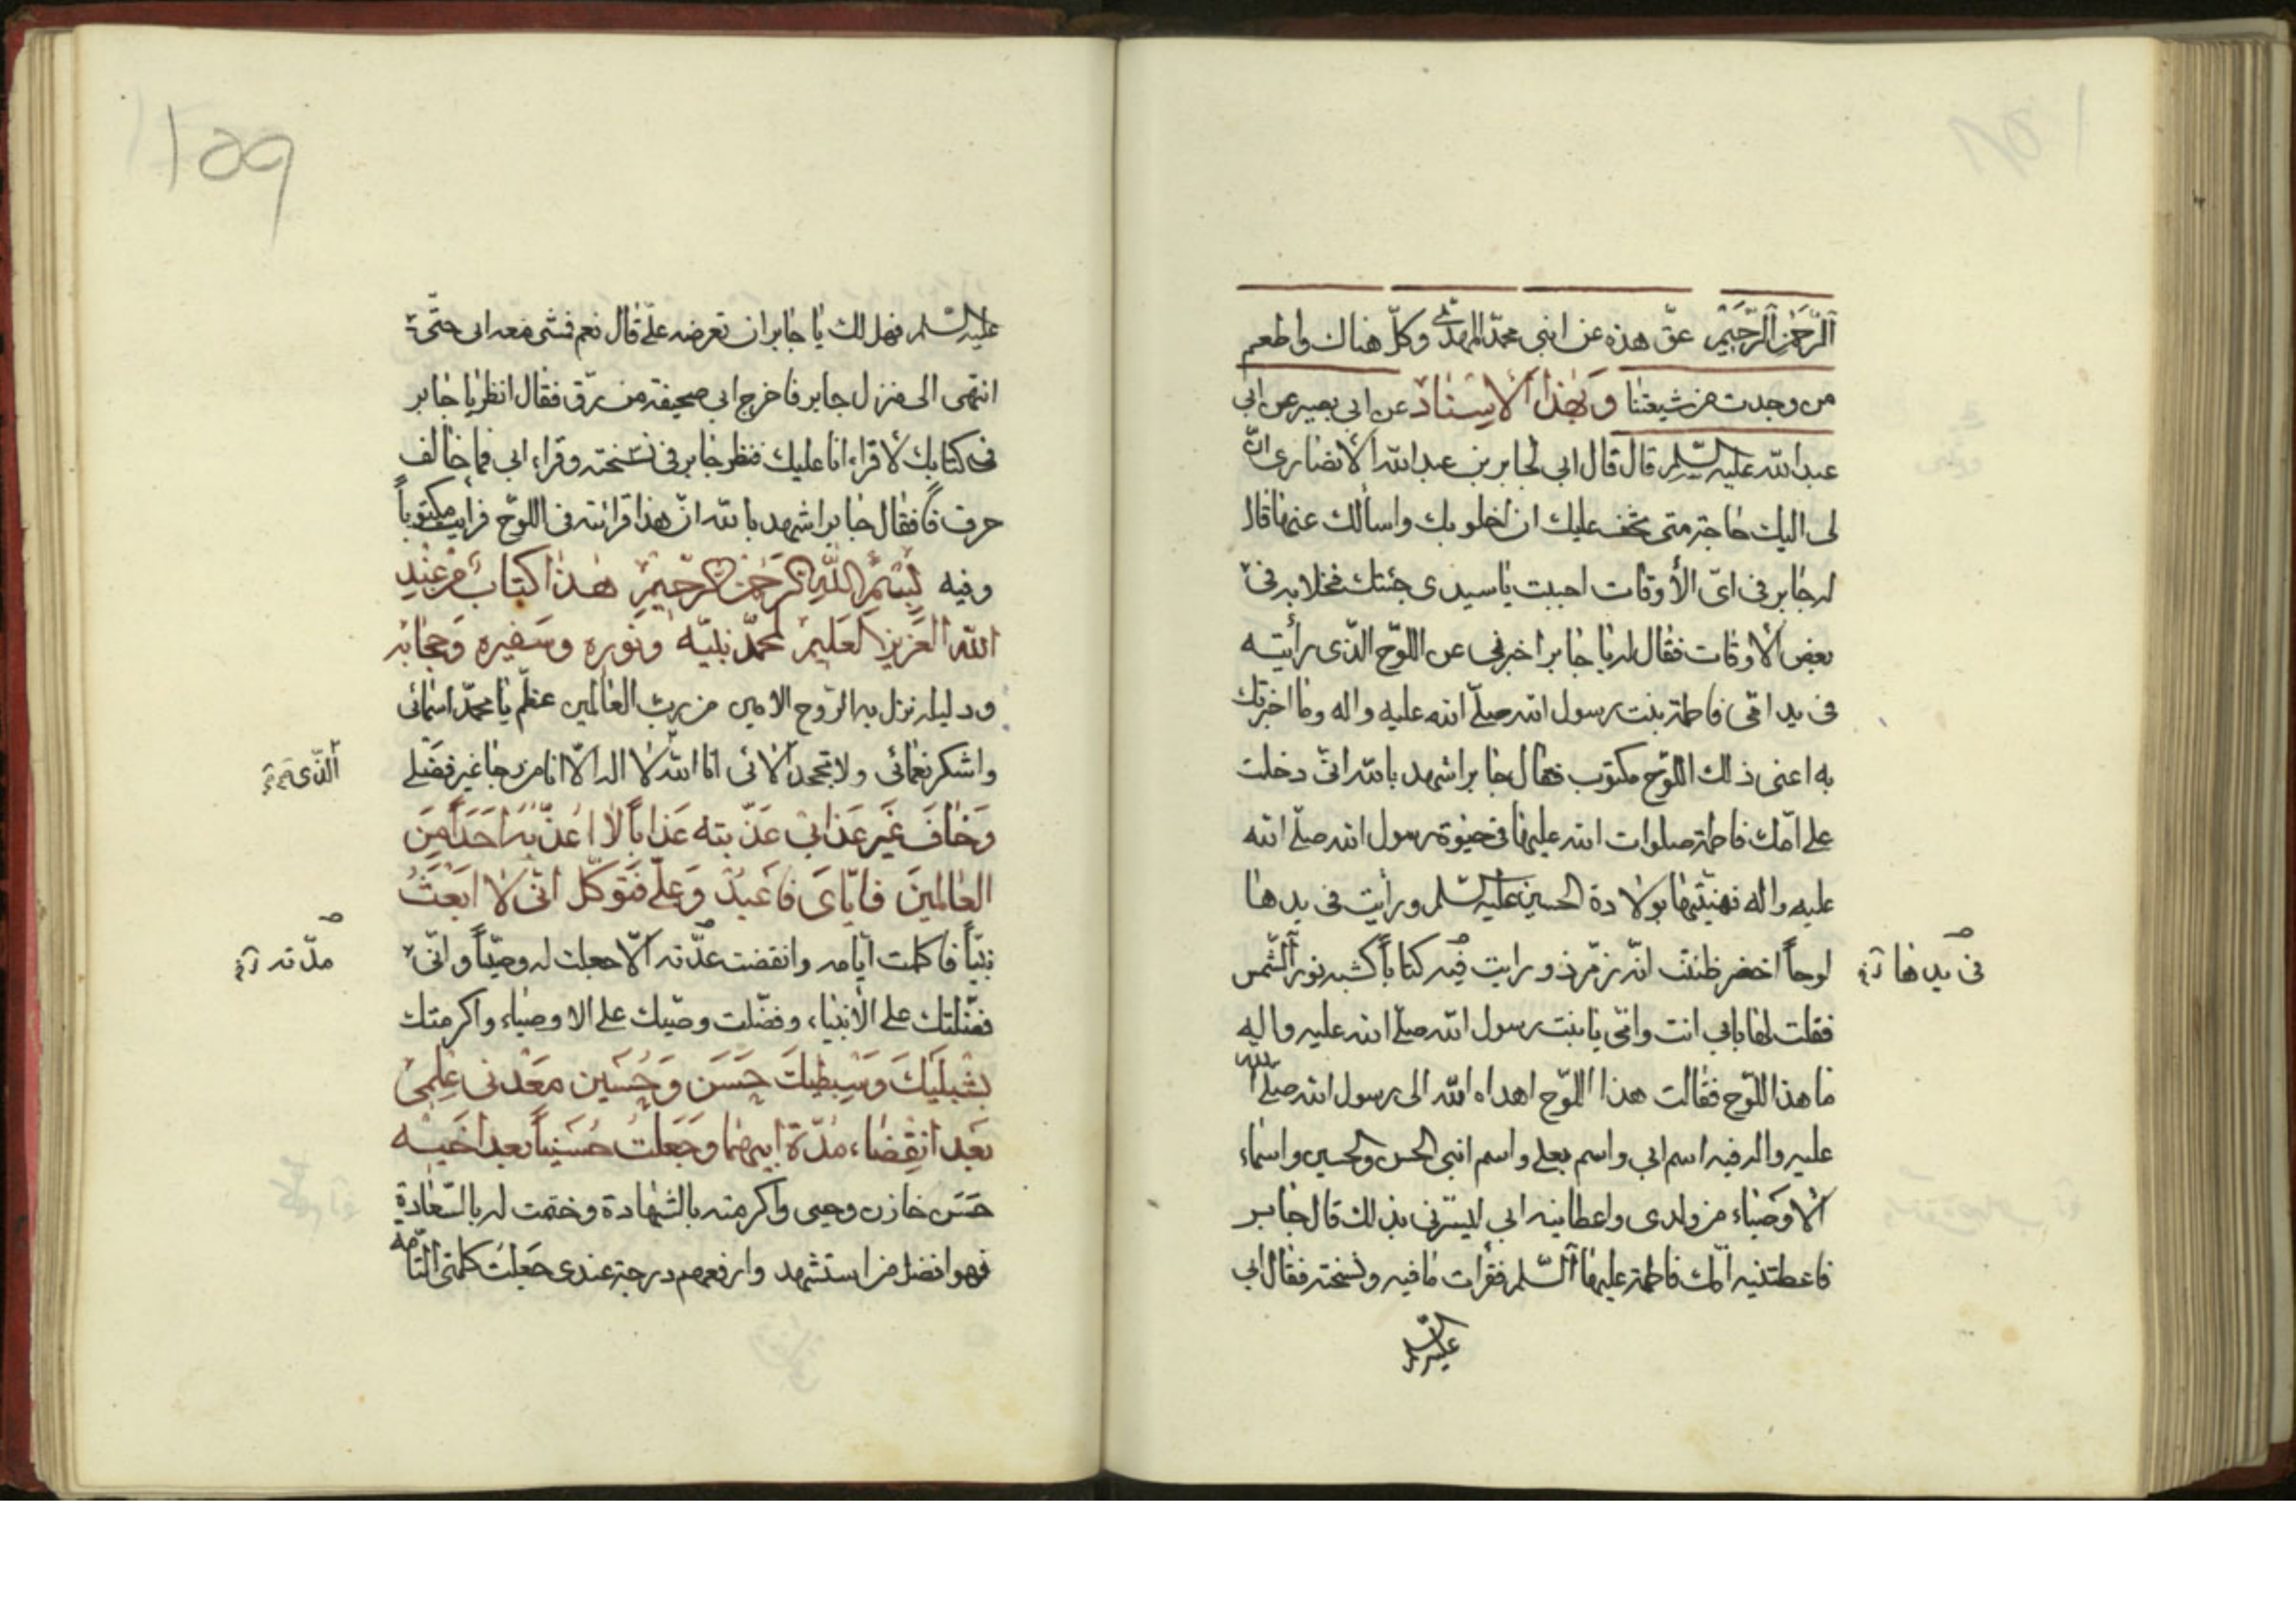 الرَّحْمٰنِ الرَّحِيْمِ عقّ هذه عن ابني محمّد المهدي وكلّ هناك واطعم
من وجدت من شيعتنا وَبِهٰذَا الْاِسْنٰادْ عن ابي بصير عن ابي
عبد الله عليه السّلم قال قال ابي لجابر بن عبد الله الأنصاري انّ
لي اليك حاجة متى يخف عليك ان اخلو بك واسألك عنها قال
له جابر في ايّ الأوقات احببت ياسيدي جئتك فخلا به في
بعض الأوقات فقال له يا جابر اخبرني عن اللّوح الّذي رأيته
في يد امّي فاطمة بنت رسول الله صلّى الله عليه واله وما اخبرتك
به اعني ذلك اللّوح مكتوب فقال جابر اشهد بالله انّي دخلت
على امّك فاطمة صلوات الله عليها في حيوة رسول الله صلّى الله
عليه واله فهنيّتها بولادة الحسين عليه السّلم ورأيت في يدها
لوحاً اخضر ظننت انّه زمّرذ ورايت فيه كتاباً كشبه نور الشّمس
في يدها
فقلت لها بابي انت وامّي يا بنت رسول الله صلّى الله عليه واله
ما هذا اللّوح فقالت هذا اللّوح اهداه الله الى رسول الله صلّى الله
عليه واله فيه اسم ابي واسم بعلي واسم ابني الحسن والحسين واسماء
الأوصياء من ولدي واعطانيه ابي ليسرّني بذلك قال جابر
فاعطتنيه امّك فاطمة عليها السّلم فقرأت ما فيه ونسخته فقال ابي
عليه السلم
١٥٩
عليه السّلم فهل لك يا جابر ان تعرضه عليّ قال نعم فمشى معه ابي حتّى
انتهى الى منزل جابر فاخرج ابي صحيفة من رّق فقال انظر يا جابر
في كتابك لأقراء انا عليك فنظر جابر في نسخته وقراء ابي فما خالف
حرف حرفاً فقال جابر اشهد بالله انّ هذا قرائته في اللّوح فرايت مكتوباً
وفيه بِسْمِ اللّٰهِ الرَّحْمٰنِ الرَّحِيْمِ هٰذٰا كتابٌ مِنْ عِنْدِ
اللّٰه العَزيز العَليمْ لمحمّد نبيّه وَنوره وسَفيره وَحِجابه
ودليله نزل به الرّوح الامين من ربّ العالمين عظّم يا محمّد اسمائي
واشكر نعمائي ولا تجحد آلائي انا الله لا اله الّا انا من رجا غير فضلي
الّذي
وَخٰافَ غَير عَذابي عَذّبته عَذاباً لا اعَذّبه اَحَداً مِنَ
العٰالمينَ فايّايَ فاعْبُدْ وَعليّ فتوكّل انّي لا ابْعَثُ
نبيّاً فاكملت ايّامه وانقضت عدّته الّا جعلت له وصيّاً وانّي
مدّته
فضّلتك على الأنبياء وفضّلت وصيّك على الاوصياء واكرمتك
بشبليْكَ وَسِبطيكَ حَسَن وَحُسَين معَدني عِلمي
بَعد انقِضاء مُدّة ابيهما وجَعلتُ حُسَيناً بعد اخيه
حَسَن خازن وحيي واكرمته بالشّهادة وختمت له بالسّعادة
فهو افضل من استشهد وارفعهم درجة عندي جَعلت كلمتي التّامّه